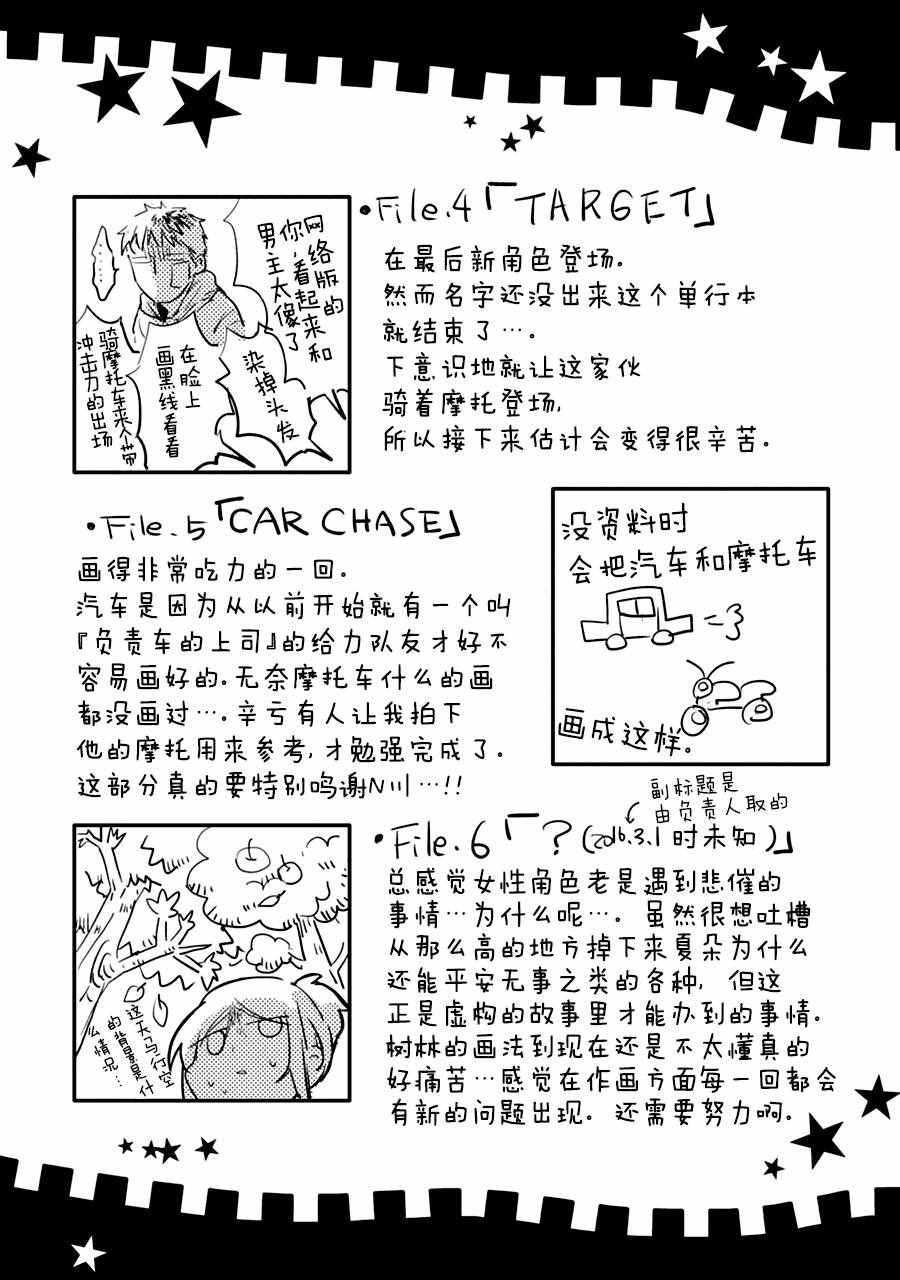 •File.4「TARGET」
在最后新角色登场.
然而名字还没出来这个单行本
就结束了….
下意识地就让这家伙
骑着摩托登场,
所以接下来估计会变得很辛苦.
网络版的
你,看起来和
男主太像了
……
染掉头发
在脸上
画黑线看看
骑摩托车来个带
冲击力的出场
•File.5「CAR CHASE」
画得非常吃力的一回.
汽车是因为从以前开始就有一个叫
『负责车的上司』的给力队友才好不
容易画好的.无奈摩托车什么的画
都没画过….辛亏有人让我拍下
他的摩托用来参考,才勉强完成了.
这部分真的要特别鸣谢N川…!!
没资料时
会把汽车和摩托车
画成这样.
•File.6「?(2016.3.1时未知)」
副标题是
由负责人取的
总感觉女性角色老是遇到悲催的
事情…为什么呢….虽然很想吐槽
从那么高的地方掉下来夏朵为什么
还能平安无事之类的各种,但这
正是虚构的故事里才能办到的事情.
树林的画法到现在还是不太懂真的
好痛苦…感觉在作画方面每一回都会
有新的问题出现.还需要努力啊.
这天马行空
的背景是什
么情况…